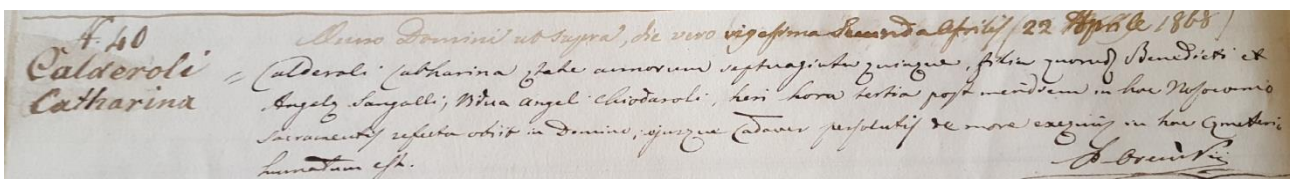 N. 40
Calderoli
Catharina
Anno Domini ut supra, die vero vigesima secunda Aprilis (22 Aprile 1868)
= Calderoli Catharina ętate annorum septuaginta quinque, filia quorum Benedicti et
Angelę Sangalli; Vidua Angeli Chiodaroli, heri hora tertia post meridiem in hoc Nosocomio
Sacramentis refecta obiit in Domino, ejusque Cadaver persolutis de more exequiis in hoc Cęmeterio
humatum est.